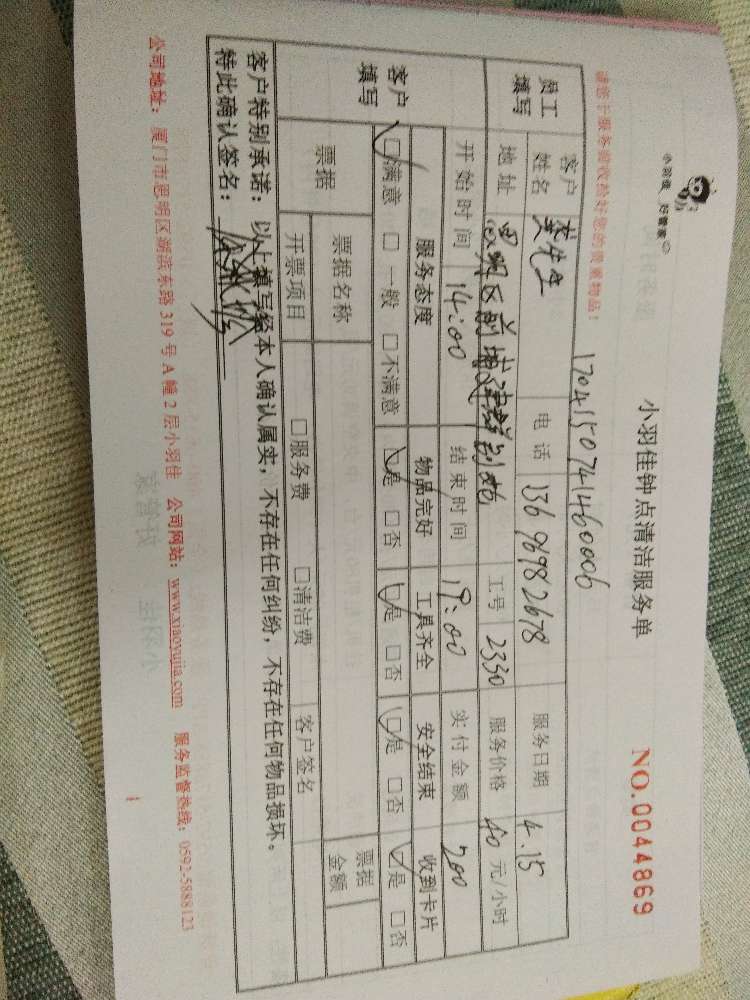 小羽佳 好管家
小羽佳钟点清洁服务单
NO.0044869
请您于服务前收拾好您的贵重物品!
1704150741460006
员工填写
客户姓名 黄先生 电话 13696982678 服务日期 4.15
地址 思明区前埔 工号 2330 服务价格 40 元/小时
客户填写
开始时间 14:00 结束时间 19:00 实付金额 200
服务态度 物品完好 工具齐全 安全结束 收到卡片
☑满意 □一般 □不满意 ☑是 □否 ☑是 □否 ☑是 □否 ☑是 □否
票据 票据名称 票据金额
开票项目 □服务费 □清洁费 客户签名
客户特别承诺:以上填写经本人确认属实,不存在任何纠纷,不存在任何物品损坏。
特此确认签名:
公司地址:厦门市思明区湖滨东路319号A幢2层小羽佳 公司网站:www.xiaoyujia.com 服务监督热线:0592-5888123